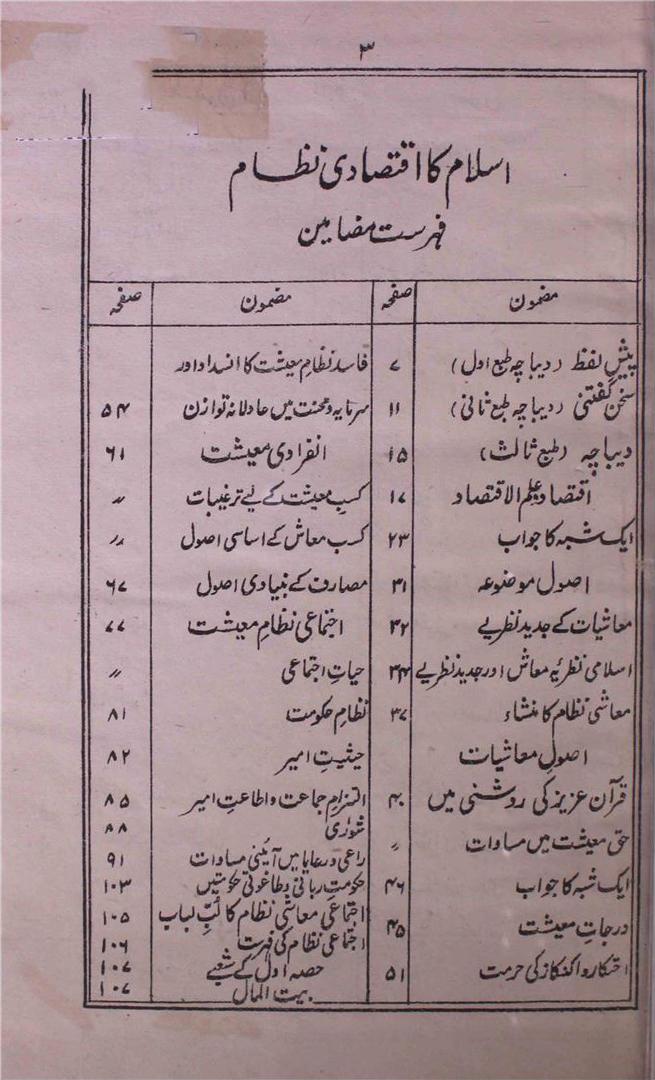 ۳
اسلام کا اقتصادی نظام
فہرست مضامین
مضمون صفحہ
پیش لفظ (دیباچہ طبع اول) ۷
سخن گفتنی (دیباچہ طبع ثانی) ۱۱
دیباچہ (طبع ثالث) ۱۵
اقتصاد و علم الاقتصاد ۱۷
ایک شبہ کا جواب ۲۳
اصول موضوعہ ۳۱
معاشیات کے جدید نظریے ۳۲
اسلامی نظریۂ معاش اور جدید نظریے ۳۴
معاشی نظام کا منشاء ۳۷
اصولِ معاشیات
قرآن عزیز کی روشنی میں ۴۰
حق معیشت میں مساوات 〃
ایک شبہ کا جواب ۴۶
درجاتِ معیشت ۴۵
احتکار و اکتناز کی حرمت ۵۱
مضمون صفحہ
فاسد نظامِ معیشت کا انسداد اور
سرمایہ و محنت میں عادلانہ توازن ۵۴
انفرادی معیشت ۶۱
کسبِ معیشت کے لیے ترغیبات 〃
کسب معاش کے اساسی اصول 〃
مصارف کے بنیادی اصول ۶۷
اجتماعی نظامِ معیشت ۷۷
حیاتِ اجتماعی 〃
نظامِ حکومت ۸۱
حیثیتِ امیر ۸۲
التزامِ جماعت و اطاعتِ امیر ۸۵
شوریٰ ۸۸
راعی و رعایا میں آئینی مساوات ۹۱
حکومتِ ربانی و طاغوتی حکومتیں ۱۰۳
اجتماعی معاشی نظام کا لُبِّ لباب ۱۰۵
اجتماعی نظام کی فہرست ۱۰۶
حصہ اول کے شعبے ۱۰۷
بیت المال ۱۰۷